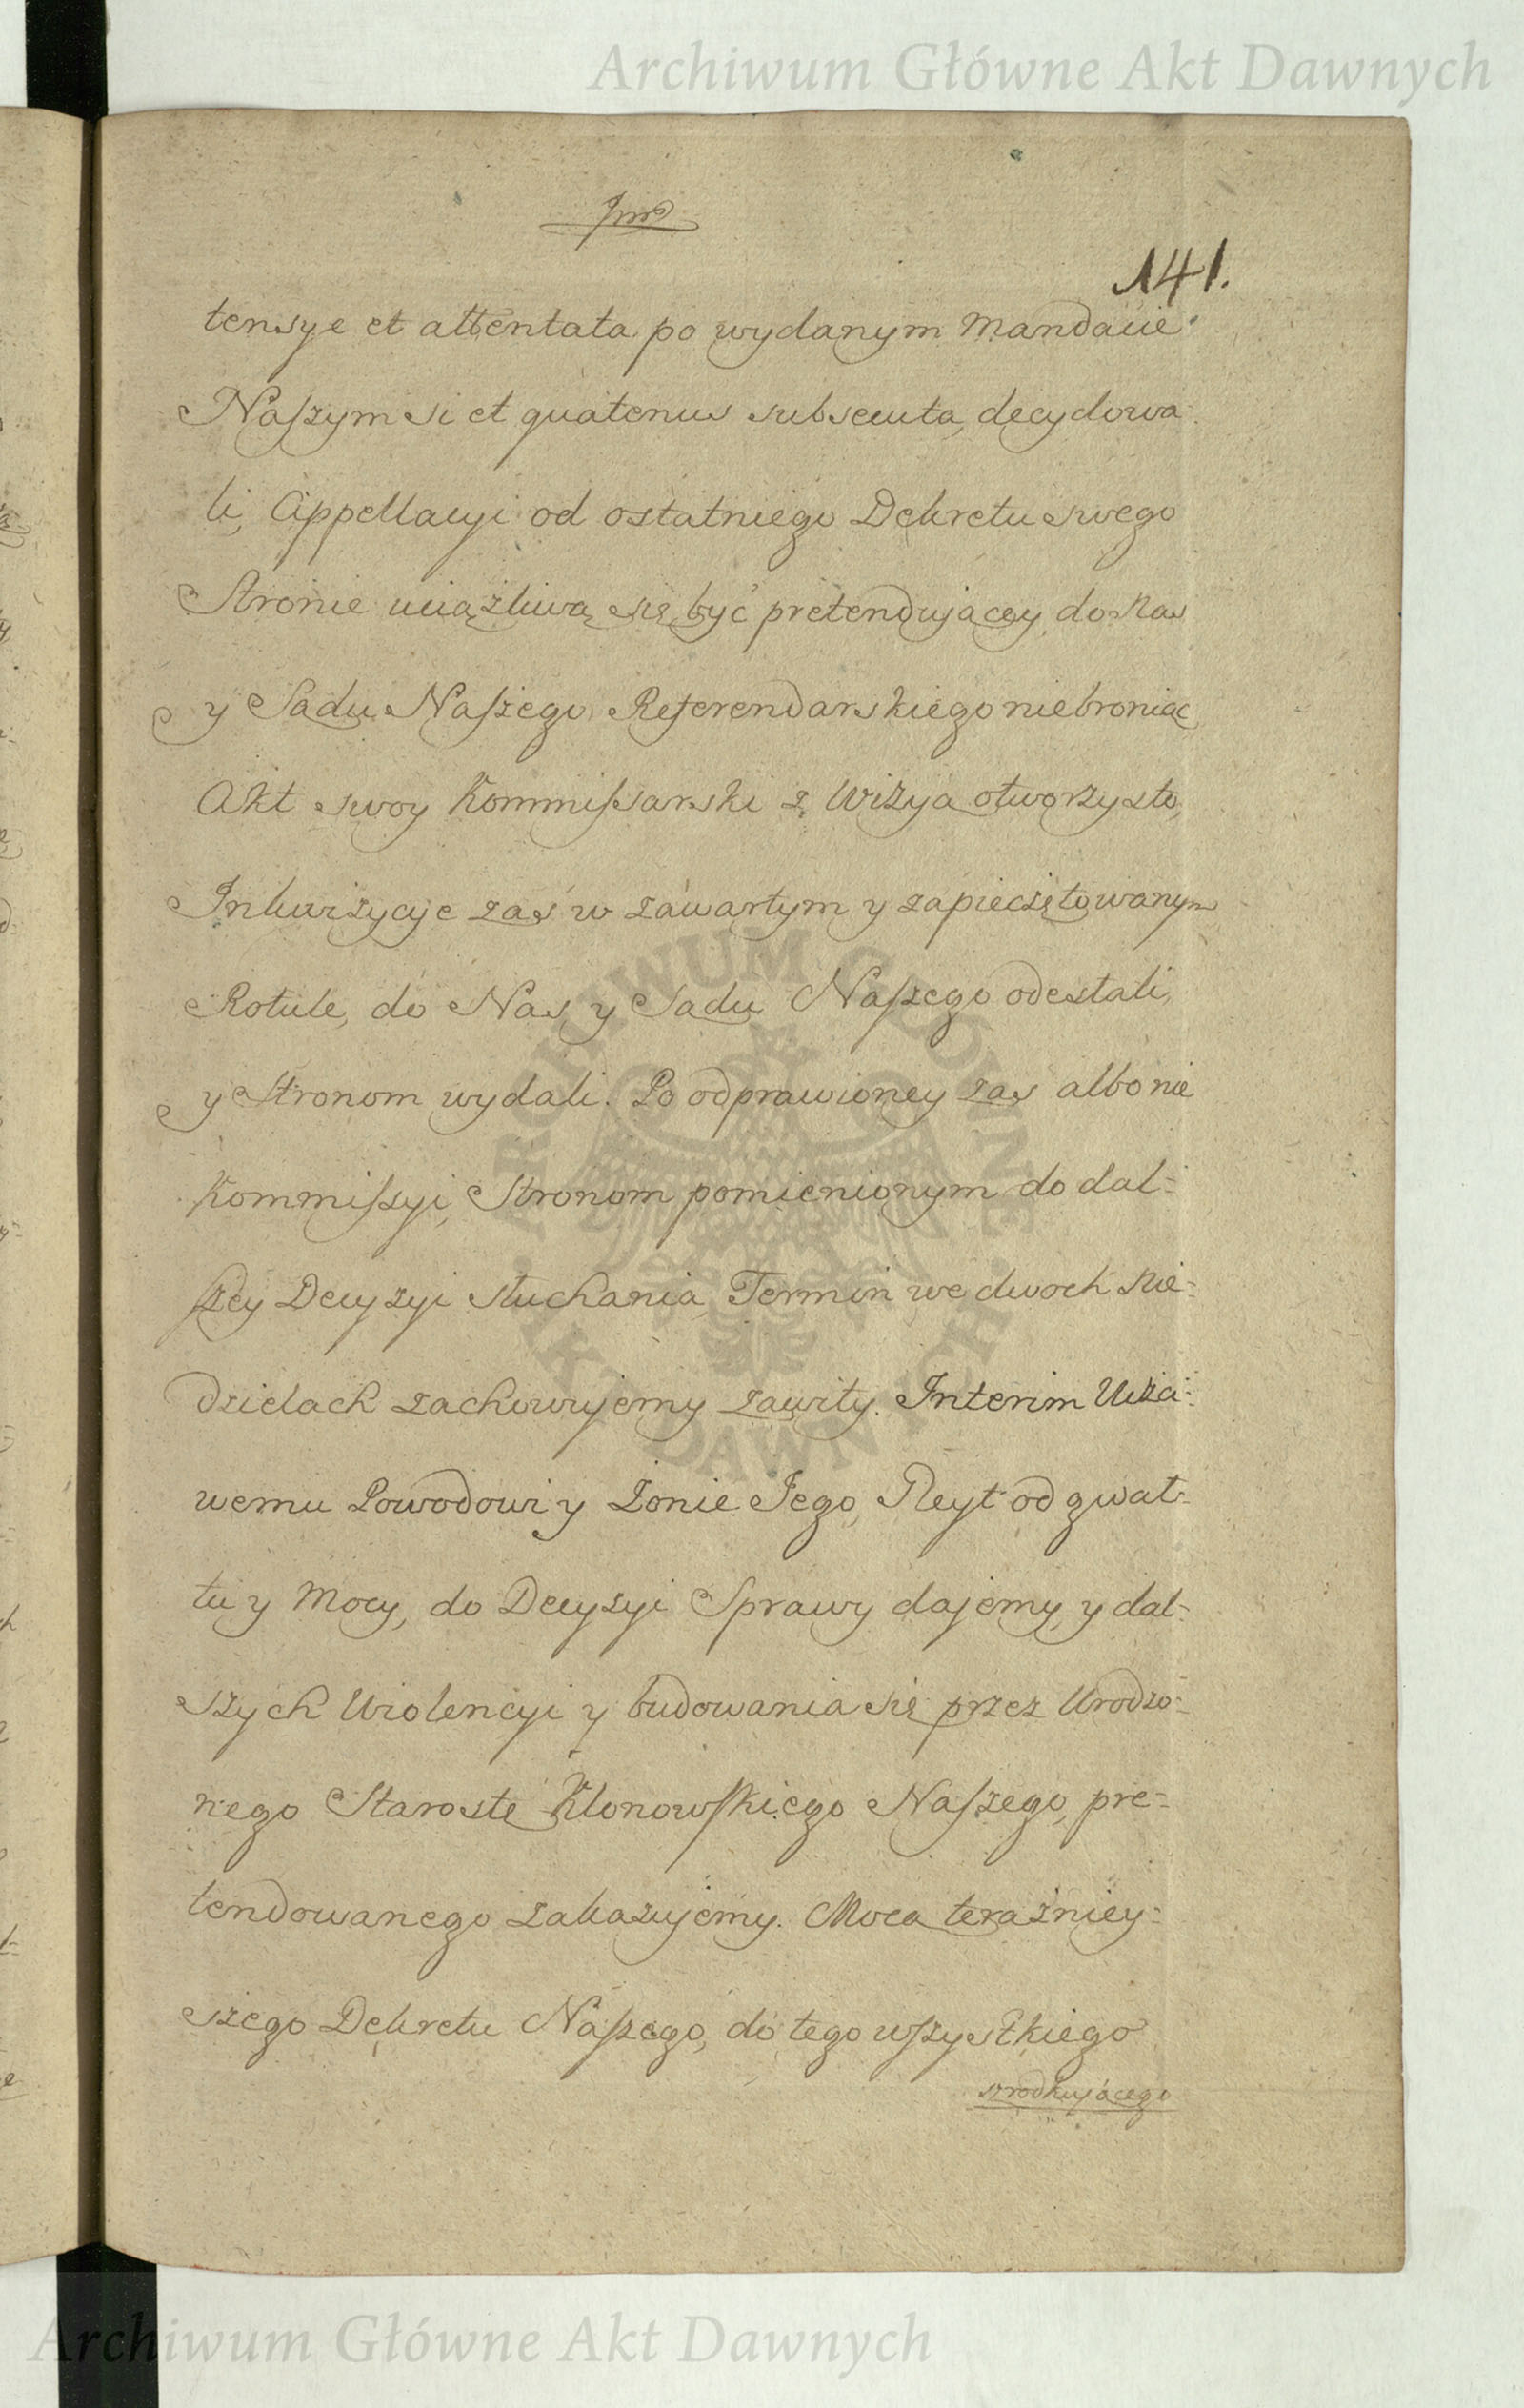 Archiwum Główne Akt Dawnych
141.
tensye et attentata po wydanym Mandacie
Naszym si et quatenus subsecuta, decydowa
li, Appellacyi od ostatniego Dekretu swego
Stronie uciążliwą się być pretendującey, do Nas
y Sądu Naszego Referendarskiego niebroniąc
Akt swoy Kommissarski z Wizyą otworzysto,
Inkwizycye zaś w zawartym y zapieczętowanym
Rotule, do Nas y Sądu Naszego odesłali,
y Stronom wydali. Po odprawioney zaś albo nie
Kommissyi, Stronom pomienionym do dal-
szey Decyzyi słuchania Termin we dwoch Nie-
dzielach zachowujemy zawity. Interim Uczci-
wemu Powodowi y Żonie Jego, Gleyt od gwał-
tu y Mocy, do Decyzyi Sprawy dajemy, y dal-
szych Violencyi y budowania się przez Urodzo-
nego Starostę Klonowskiego Naszego, pre-
tendowanego zakazujemy. Mocą teraźniey-
szego Dekretu Naszego, do tego wszystkiego
szrodkującego
ARCHIWUM GŁÓWNE AKT DAWNYCH
Archiwum Główne Akt Dawnych